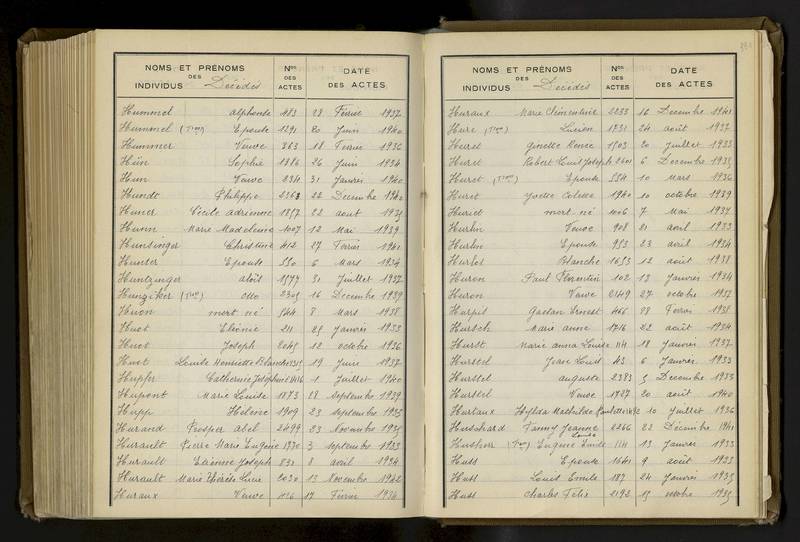 NOMS ET PRÉNOMS DES INDIVIDUS Décédés Nos DES ACTES DATE DES ACTES
Hummel Alphonse 483 23 Février 1937
Hummel Epouse 1291 20 Juin 1940
Hummer Veuve 263 18 Février 1936
Hün Sophie 1386 26 Juin 1934
Hun Veuve 234 31 Janvier 1940
Hundt Philippe 2363 22 Décembre 1940
Huner Cécile Adrienne 1857 22 août
Hunn Marie Madeleine 1007 12 Mai 1939
Hunsinger Christine 412 27 Février 1941
Hunter Epouse 550 6 Mars 1934
Huntzinger Aloïs 1577 31 Juillet 1937
Hunziker Otto 2305 16 Décembre 1939
Huon mort né 544 8 Mars 1938
Huot Eléonie 211 25 Janvier 1933
Huot Joseph 2045 12 octobre 1936
Huot Louise Henriette Blanche 1315 19 Juin 1937
Hupfer Catherine Joséphine 1416 1 Juillet 1940
Hupont Marie Louise 1873 18 septembre 1939
Hupp Hélène 1909 23 septembre 1935
Hurand Prosper Abel 2499 23 Novembre 1935
Hurault Pierre Marie Eugène 1770 3 septembre 1933
Hurault Etienne Joseph 831 8 avril 1934
Hurault Marie Thérèse Lucie 2030 13 Novembre 1942
Huraux Veuve 17 Février 1936
NOMS ET PRÉNOMS DES INDIVIDUS Décédés Nos DES ACTES DATE DES ACTES
Huraux Marie Clémentine 2233 16 Décembre 1941
Huré Lucien 1731 24 août 1937
Hurel Ginette Renée 1503 20 Juillet 1933
Hurel Robert Louis Joseph 2601 6 Décembre 1935
Huret Epouse 554 10 Mars 1936
Huret Yvette Colette 1940 10 octobre 1939
Huriet mort né 1006 7 Mai 1937
Hurlin Veuve 908 21 avril 1933
Hurlin Epouse 953 23 avril 1934
Hurlot Blanche 1653 12 août 1938
Huron Paul Florentin 102 13 Janvier 1934
Huron Veuve 2149 27 octobre 1937
Hurpil Gaston Ernest 466 28 Février 1938
Hursch Marie Anne 1716 22 août 1934
Hurst Marie Anna Louise 141 18 Janvier 1937
Hurstel Jean Louis 43 6 Janvier 1933
Hurstel Auguste 2383 5 Décembre 1933
Hurstel Veuve 1727 20 août 1940
Hurtaux Hylda Mathilde 10 Juillet 1936
Huschard Fanny Jeanne 2266 22 Décembre 1941
Eugène Emile Louis 114 13 Janvier 1933
Huss Epouse 1641 9 août 1933
Huss Louis Emile 187 24 Janvier 1935
Huss Charles Félix 2192 15 octobre 1935